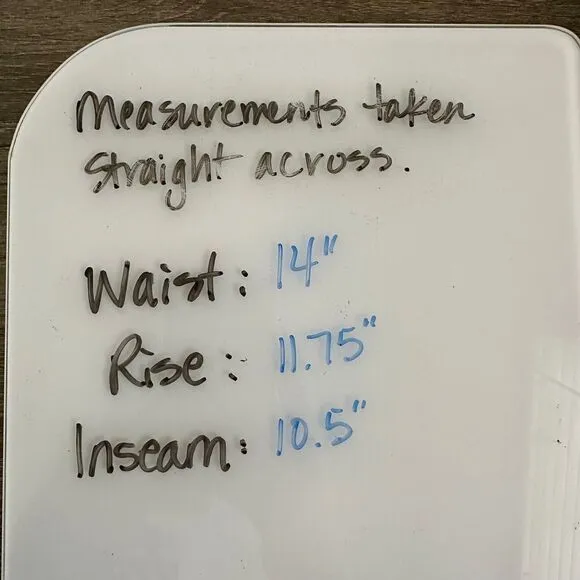 Measurements taken
straight across.
Waist: 14"
Rise: 11.75"
Inseam: 10.5"